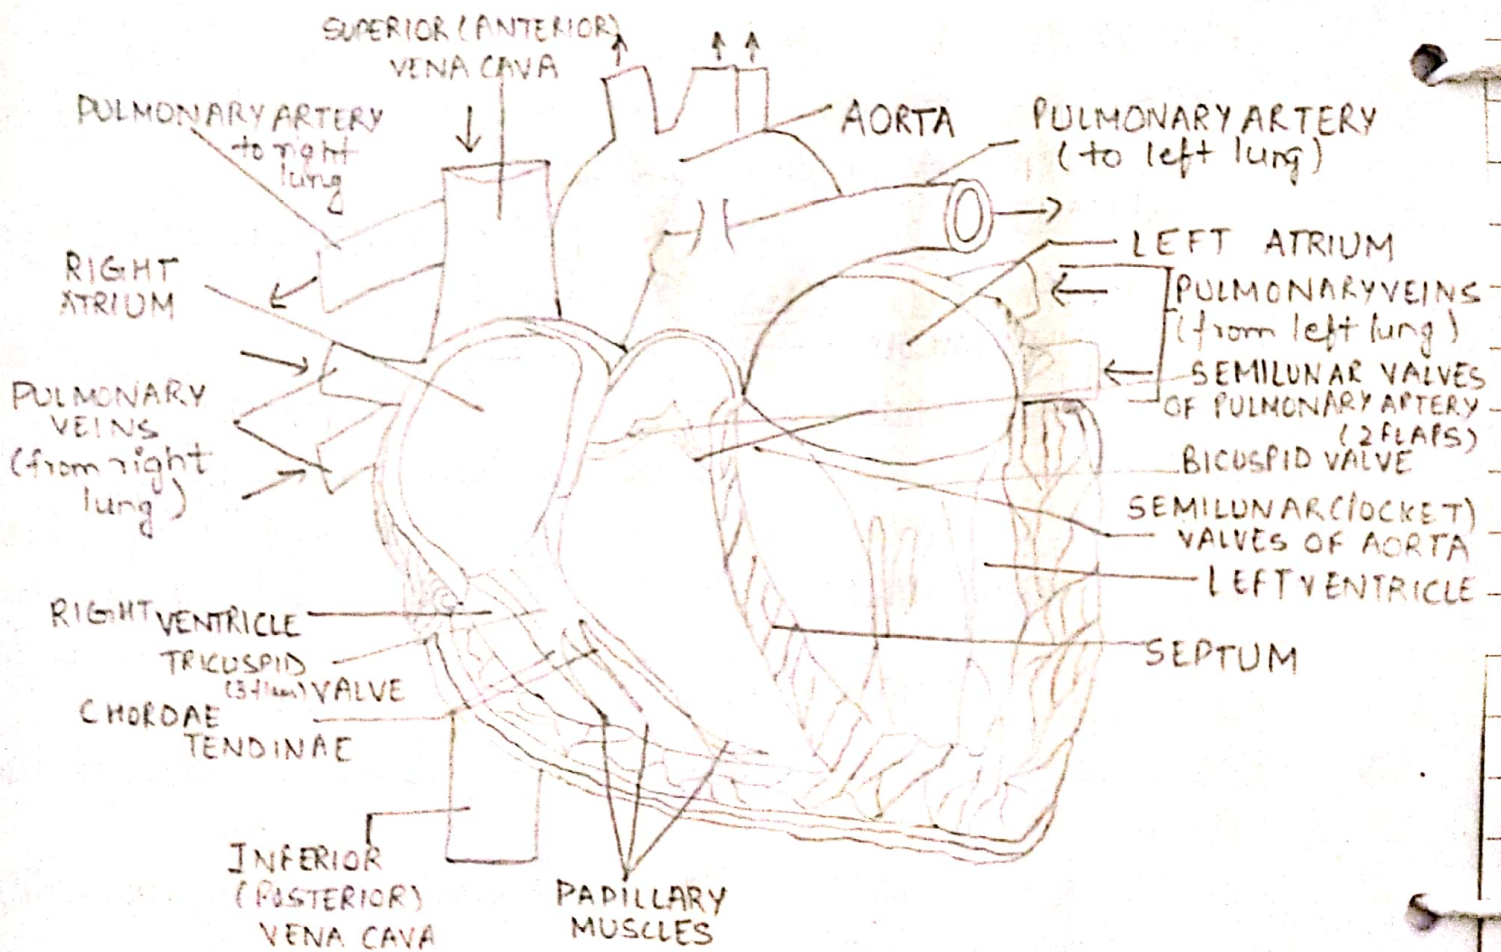 SUPERIOR (ANTERIOR)
VENA CAVA
PULMONARY ARTERY
to right
lung
AORTA
PULMONARY ARTERY
(to left lung)
RIGHT
ATRIUM
LEFT ATRIUM
PULMONARY VEINS
(from left lung)
PULMONARY
VEINS
(from right
lung)
SEMILUNAR VALVES
OF PULMONARY ARTERY
(2 FLAPS)
BICUSPID VALVE
SEMILUNAR (POCKET)
VALVES OF AORTA
LEFT VENTRICLE
RIGHT VENTRICLE
TRICUSPID
VALVE
SEPTUM
CHORDAE
TENDINAE
INFERIOR
(POSTERIOR)
VENA CAVA
PAPILLARY
MUSCLES